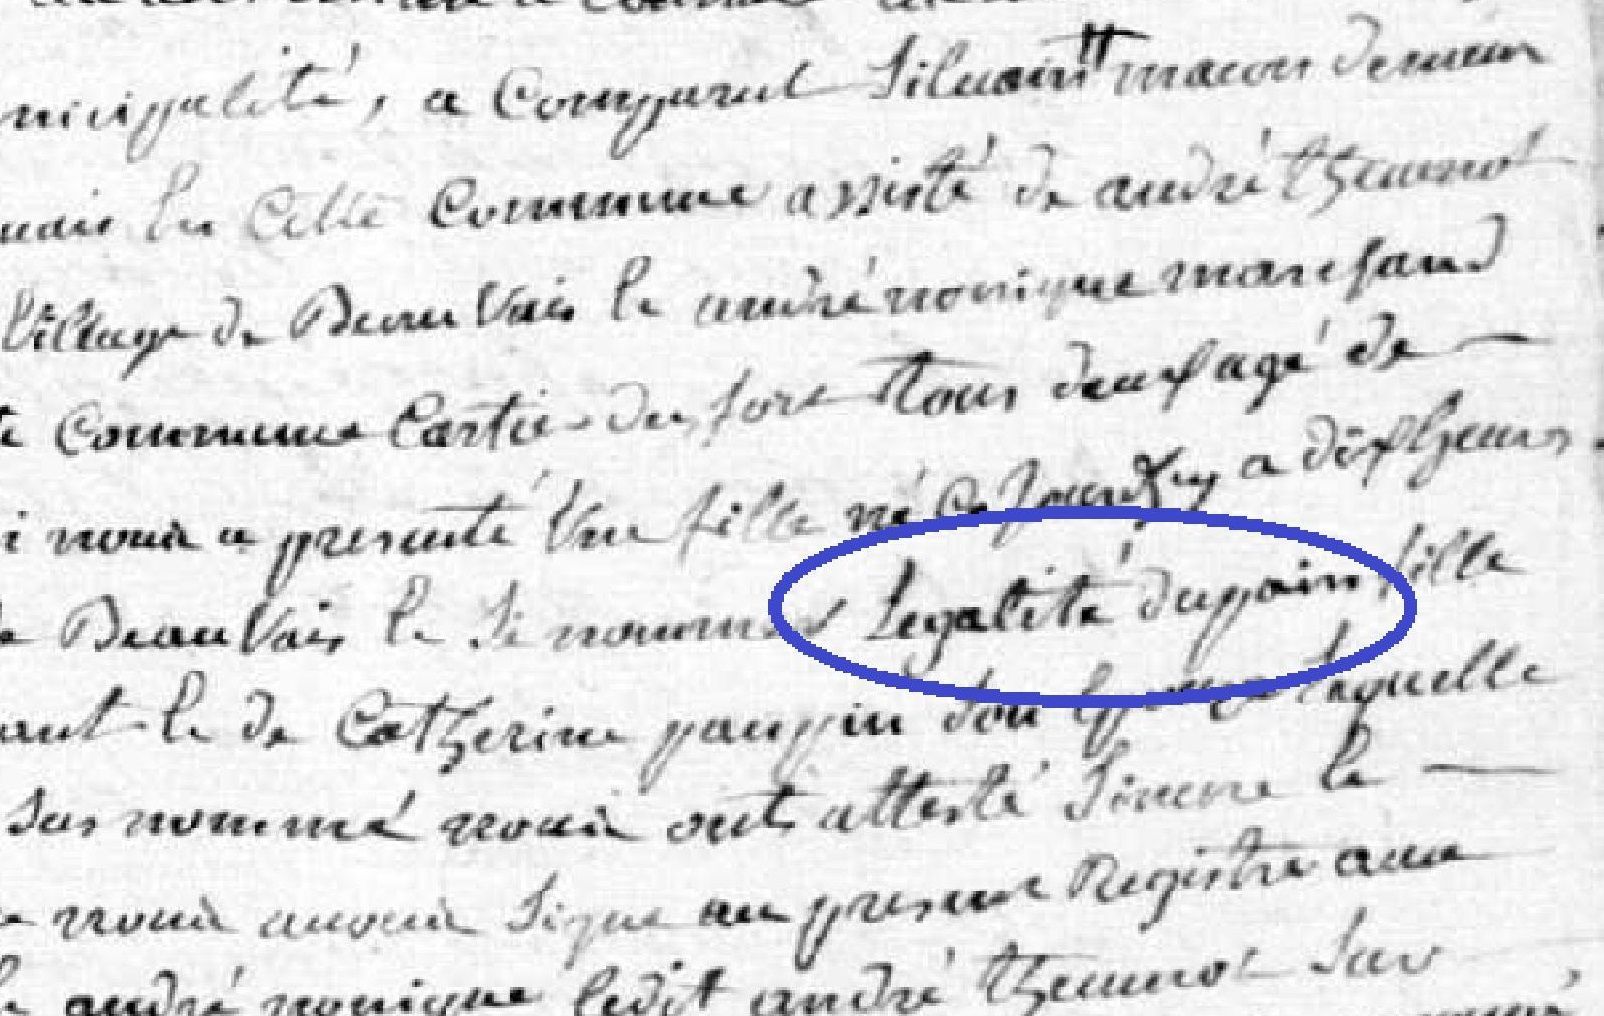 nicipalité, a Comparut Silvain tt macon demeur
en Cette Commune assisté de andré theunot
Village de Beau Vais le andré monique marchand
Commune Cartie du fort tous deux agé de
nous a presenté Une fille né Ce jourdhuy a dix heures
Beau Vais le Se nommer Legalité dupain fille
le de Catherine paupin Son laquelle
Sus nommé nous ont attesté Sincere le
nous avons Signe au present Registre avec
andré monique ledit andré theunot Sus